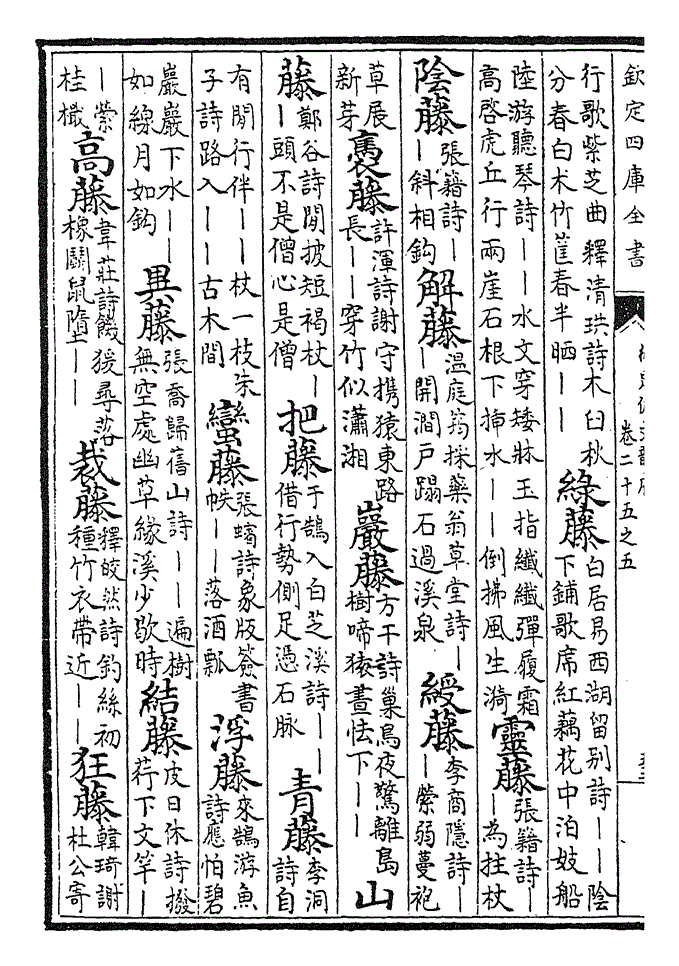 欽定四庫全書
卷二十五之五
行歌紫芝曲釋清珙詩木臼秋分春白术竹筐春半晒｜｜ 綠藤 白居易西湖留别詩｜｜陰下鋪歌席紅藕花中泊妓船
陸游聽琴詩｜｜水文穿矮牀玉指纖纖彈履霜高啓虎丘行兩崖石根下揷水｜｜倒拂風生漪 靈藤 張籍詩｜｜為拄杖
陰藤 張籍詩｜｜斜相鈎 解藤 温庭筠採藥翁草堂詩｜｜開澗戸蹋石過溪泉 綬藤 李商隱詩｜｜縈弱蔓袍
草展新芽 褭藤 許渾詩謝守携猿東路長｜｜穿竹似瀟湘 巖藤 方干詩巢鳥夜驚離島樹啼猿晝怯下｜｜ 山
藤 鄭谷詩閒披短褐杖｜｜頭不是僧心是僧 把藤 于鵠入白芝溪詩｜｜借行勢側足憑石脉 青藤 李洞詩自
有閒行伴｜｜杖一枝朱子詩路入｜｜古木間 蠻藤 張蠙詩象版簽書帙｜｜落酒瓢 浮藤 來鵠游魚詩應怕碧
巖巖下水｜｜如線月如鈎 異藤 張喬歸舊山詩｜｜遍樹無空處幽草緣溪少歇時 結藤 皮日休詩撥荇下文竿｜
｜縈桂檝 高藤 韋莊詩饑猨尋落橡鬬鼠墮｜｜ 裁藤 釋皎然詩釣絲初種竹衣帶近｜｜ 狂藤 韓琦謝杜公寄